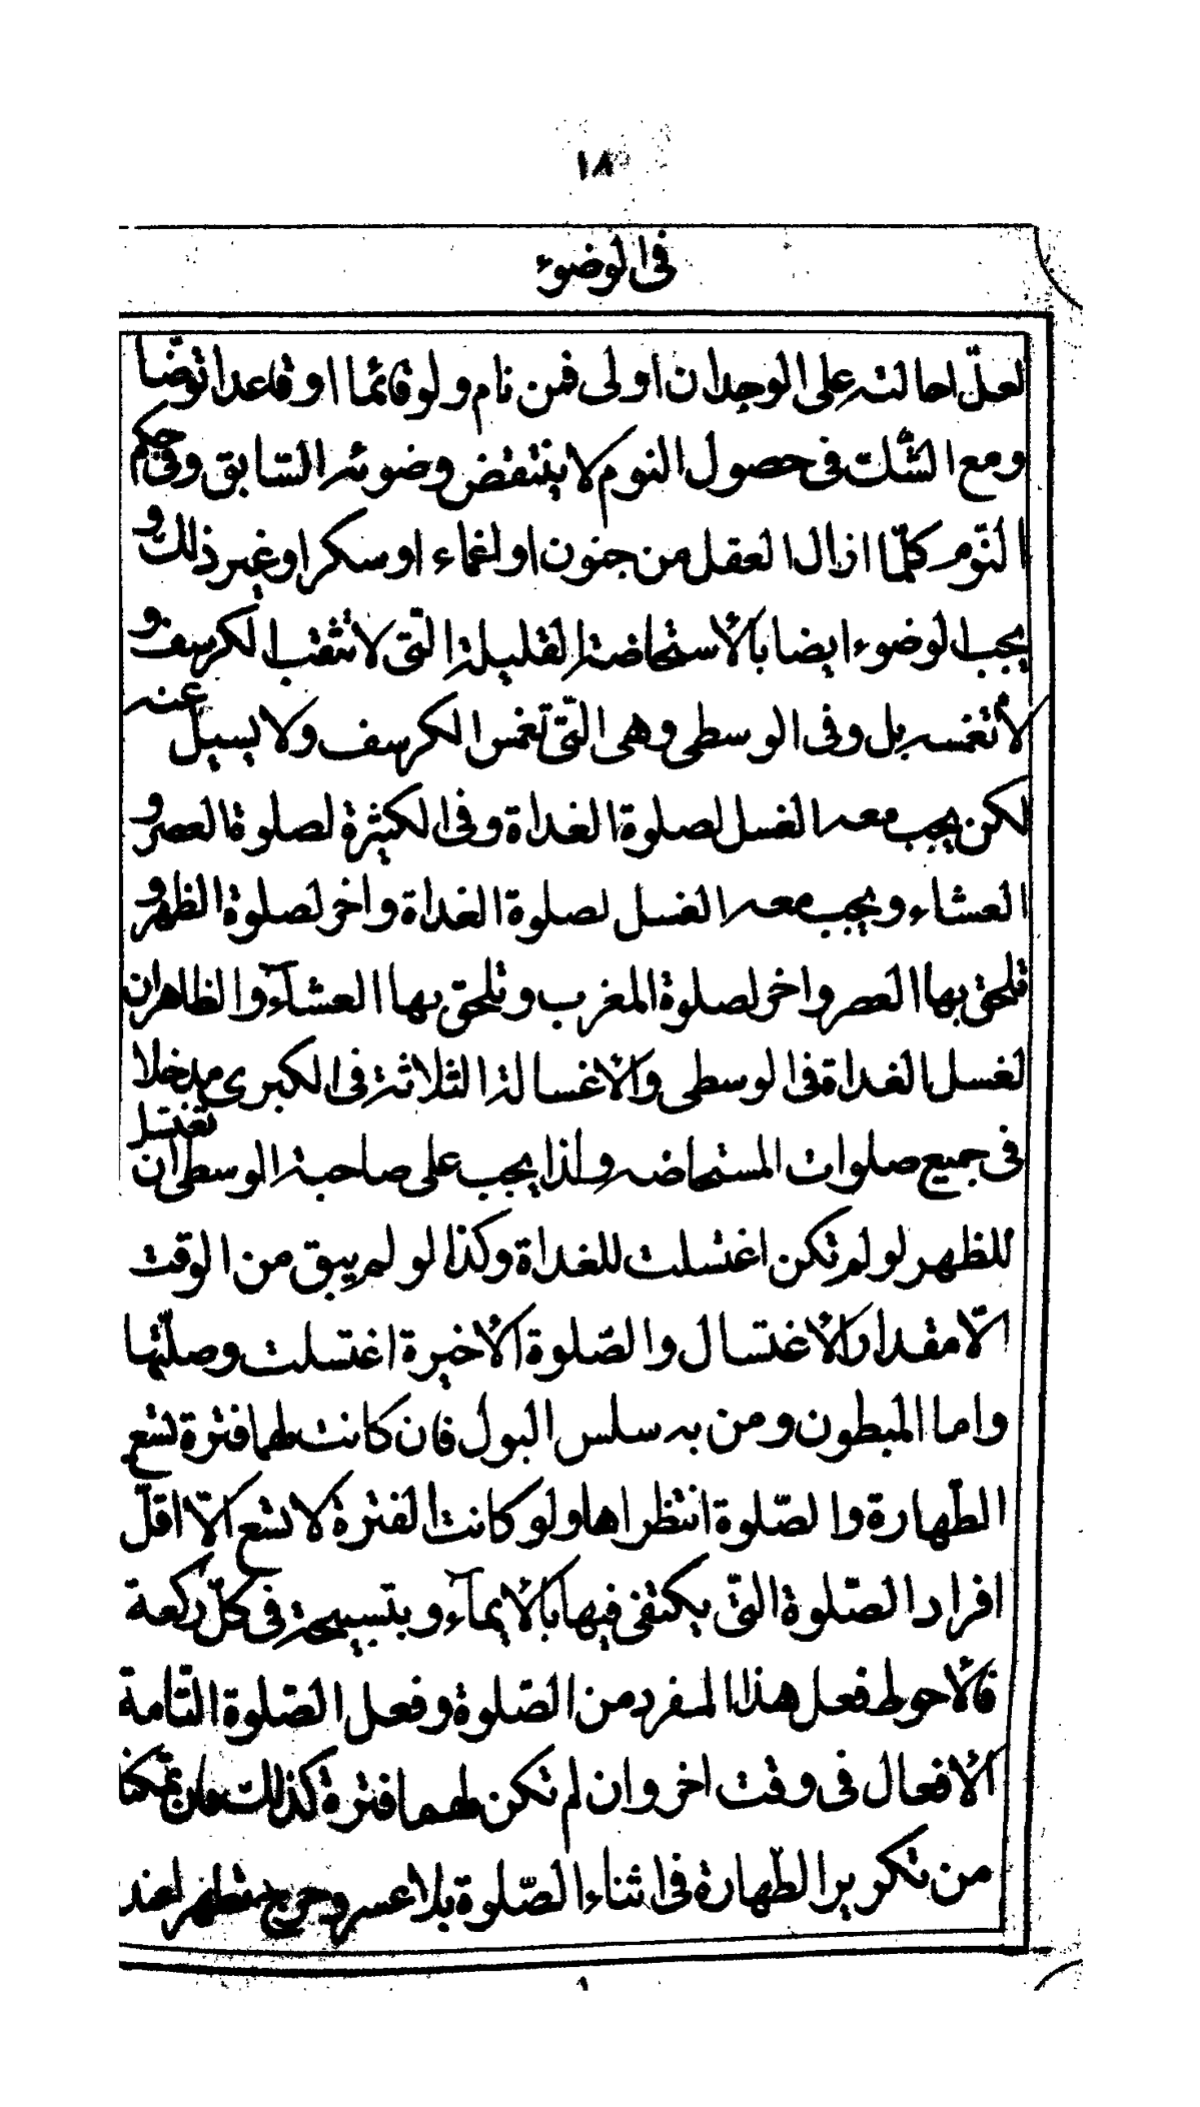 ١٨
فى الوضوء
لعلّ احالته على الوجدان اولى فمن نام ولو قائما او قاعدا توضّا
ومع الشّك فى حصول النوم لا ينتقض وضوئه السّابق وفى حكم
النّوم كلّما ازال العقل من جنون او اغماء او سكر او غير ذلك و
يجب الوضوء ايضا بالأستحاضة القليلة الّتى لا تثقب الكرسف و
لا تغمسه بل وفى الوسطى وهى الّتى تغمس الكرسف ولا يسيل عنه
لكن يجب معه الغسل لصلوة الغداة وفى الكثيرة لصلوة العصر و
العشاء ويجب معه الغسل لصلوة الغداة واخر لصلوة الظهر و
تلحق بها العصر واخر لصلوة المغرب وتلحق بها العشآء والظاهر ان
لغسل الغداة فى الوسطى والأغسالة الثلاثة فى الكبرى مدخلا
فى جميع صلوات المستحاضه ولذا يجب على صاحبة الوسطى ان تغتسل
للظهر لو لم تكن اغتسلت للغداة وكذا لو لم يبق من الوقت
الّا مقدار الأغتسال والصّلوة الأخيرة اغتسلت وصلّتها
واما المبطون ومن به سلس البول فان كانت لهما فترة تسع
الطّهارة والصّلوة انتظراها ولو كانت الفترة لا تسع الّا اقلّ
افراد الصّلوة التّى يكتفى فيها بالأيمآء وبتسبيحة فى كلّ ركعة
فالأحوط فعل هذا المفرد من الصّلوة وفعل الصّلوة التّامة
الأفعال فى وقت اخر وان لم تكن لهما فترة كذلك فان تمّكنا
من تكرير الطّهارة فى اثناء الصّلوة بلا عسر وحرج